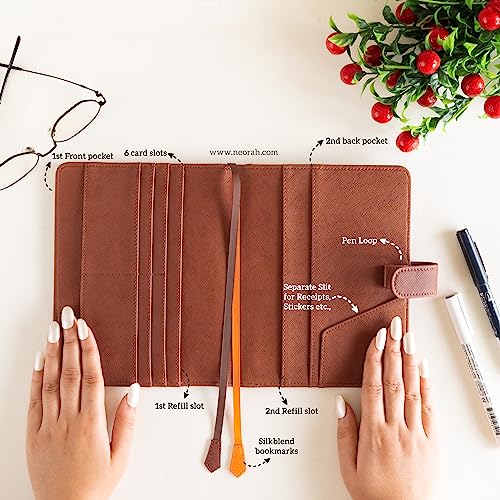 www.neorah.com
2nd back pocket
6 card slots
1st Front pocket
Pen Loop
Separate Slit
for Receipts,
Stickers etc.,
1st Refill slot
2nd Refill slot
Silkblend
bookmarks